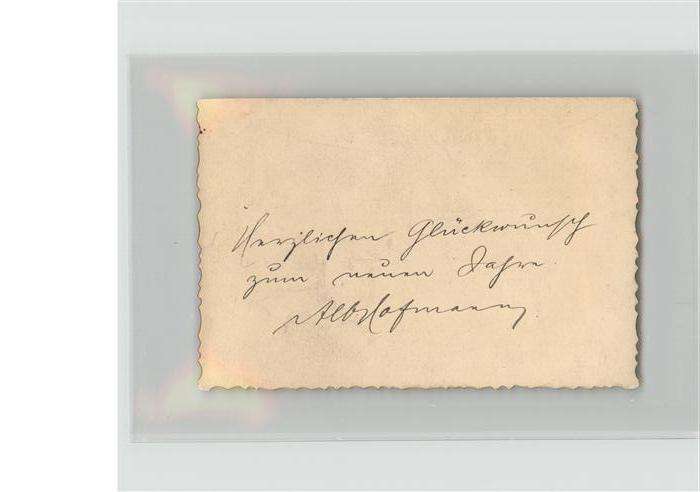 Herzlichen Glückwunsch
zum neuen Jahre
Alb Hofmann